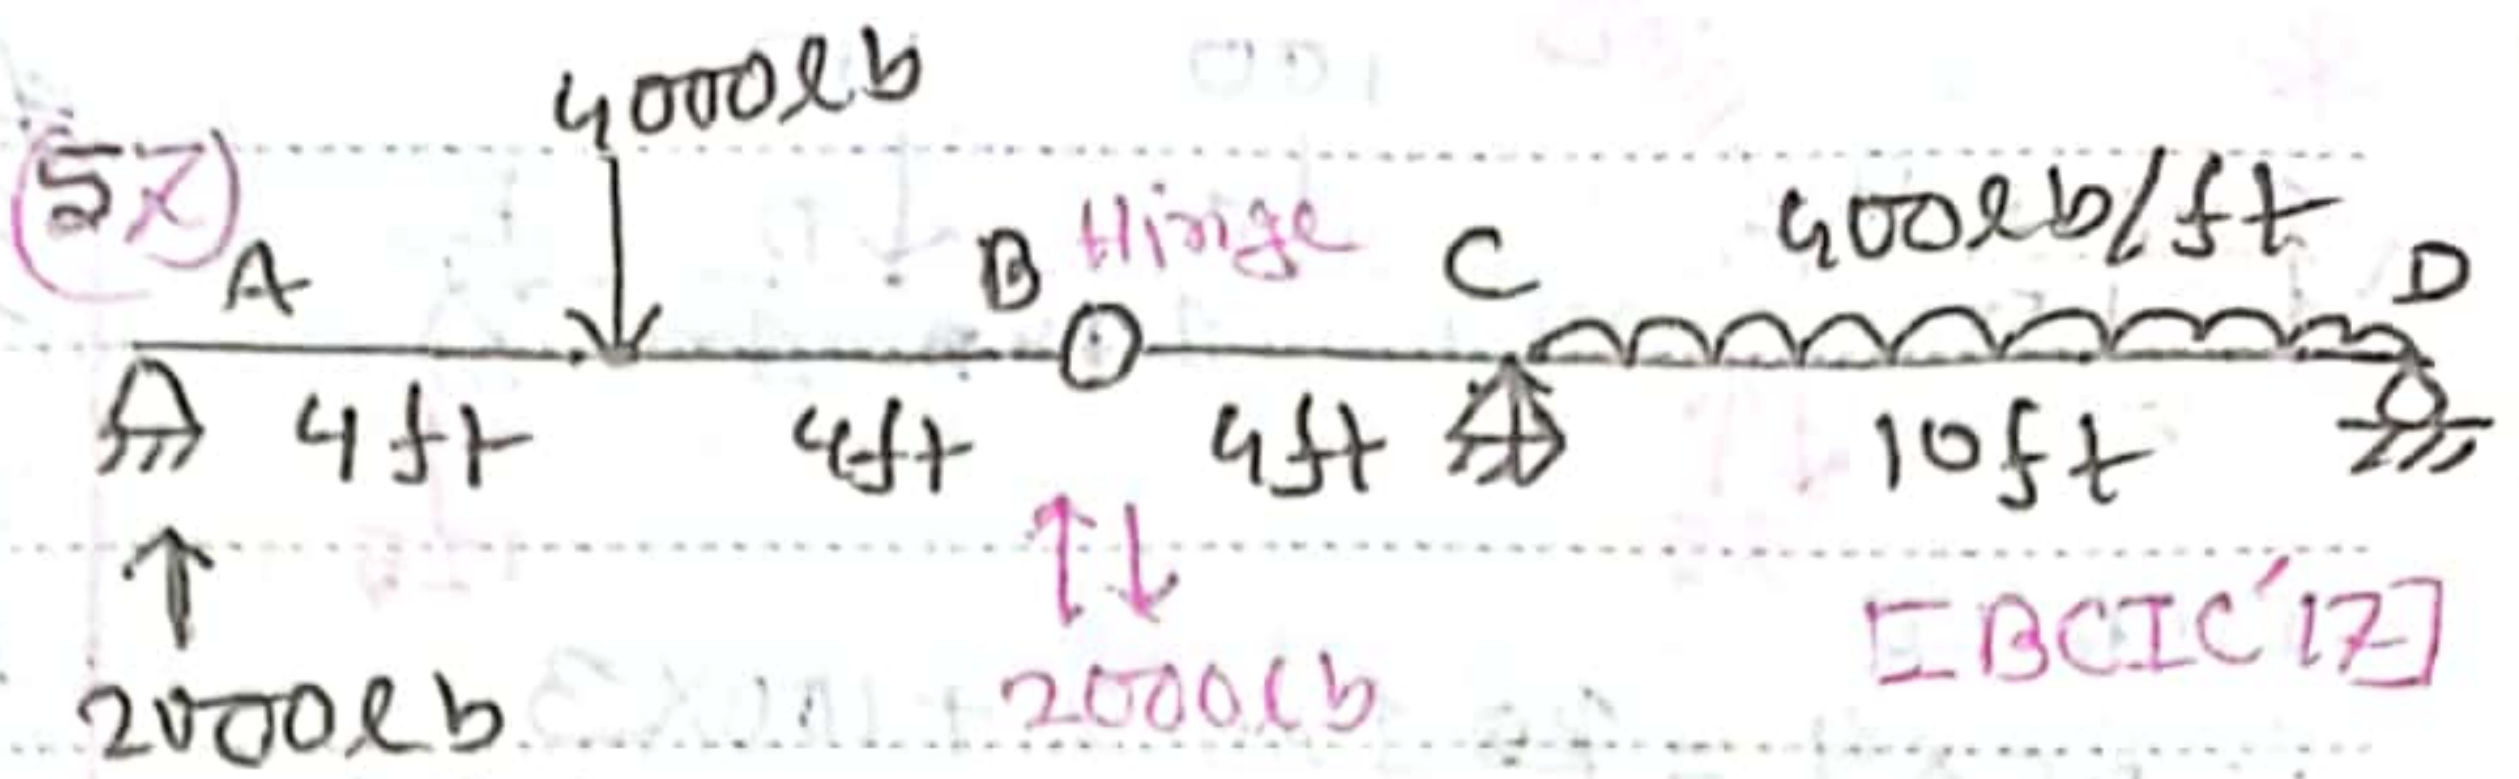 4000lb
5)
A
B Hinge
C
400lb/ft
D
4ft
4ft
4ft
10ft
2000lb
2000lb
[BCIC'17]